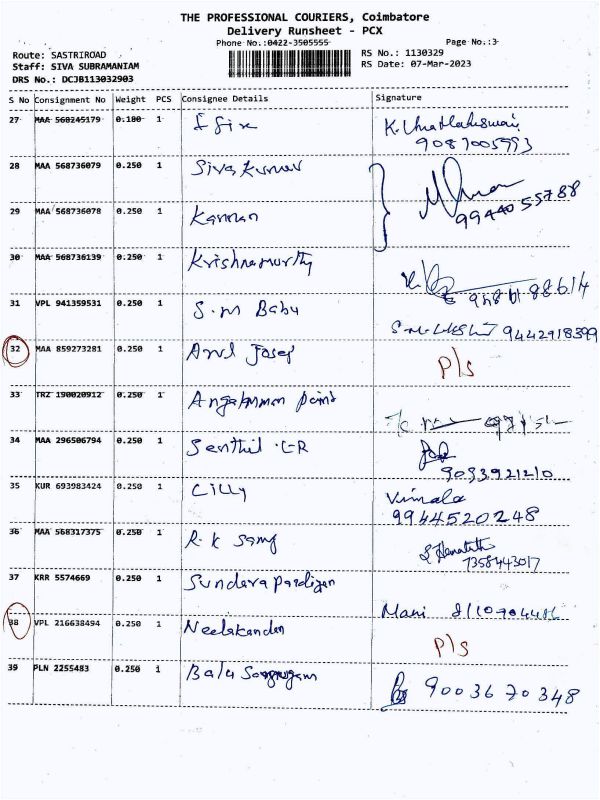 THE PROFESSIONAL COURIERS, Coimbatore
Delivery Runsheet - PCX
Phone No.:0422-3505555 Page No.:3
Route: SASTRIROAD RS No.: 1130329
Staff: SIVA SUBRAMANIAM RS Date: 07-Mar-2023
DRS No.: DCJB113032903
S No Consignment No Weight PCS Consignee Details Signature
27 MAA 560245179 0.100 1
9087005993
28 MAA 568736079 0.250 1 Sivakumar
9944055788
29 MAA 568736078 0.250 1 Kannan
30 MAA 568736139 0.250 1 Krishnamurthy
31 VPL 941359531 0.250 1 S.M Babu
9442918399
32 MAA 859273281 0.250 1 Arul Josef P/s
33 TRZ 190020912 0.250 1
34 MAA 296506794 0.250 1 Senthil
9093921210
35 KUR 693983424 0.250 1 Cilly Vimala
9944520248
36 MAA 568317375 0.250 1 R.K Samy
7358443017
37 KRR 5574669 0.250 1 Sundara Pandiyan
Mani
38 VPL 216638494 0.250 1 Neelakandan P/s
39 PLN 2255483 0.250 1 Bala 9003670348